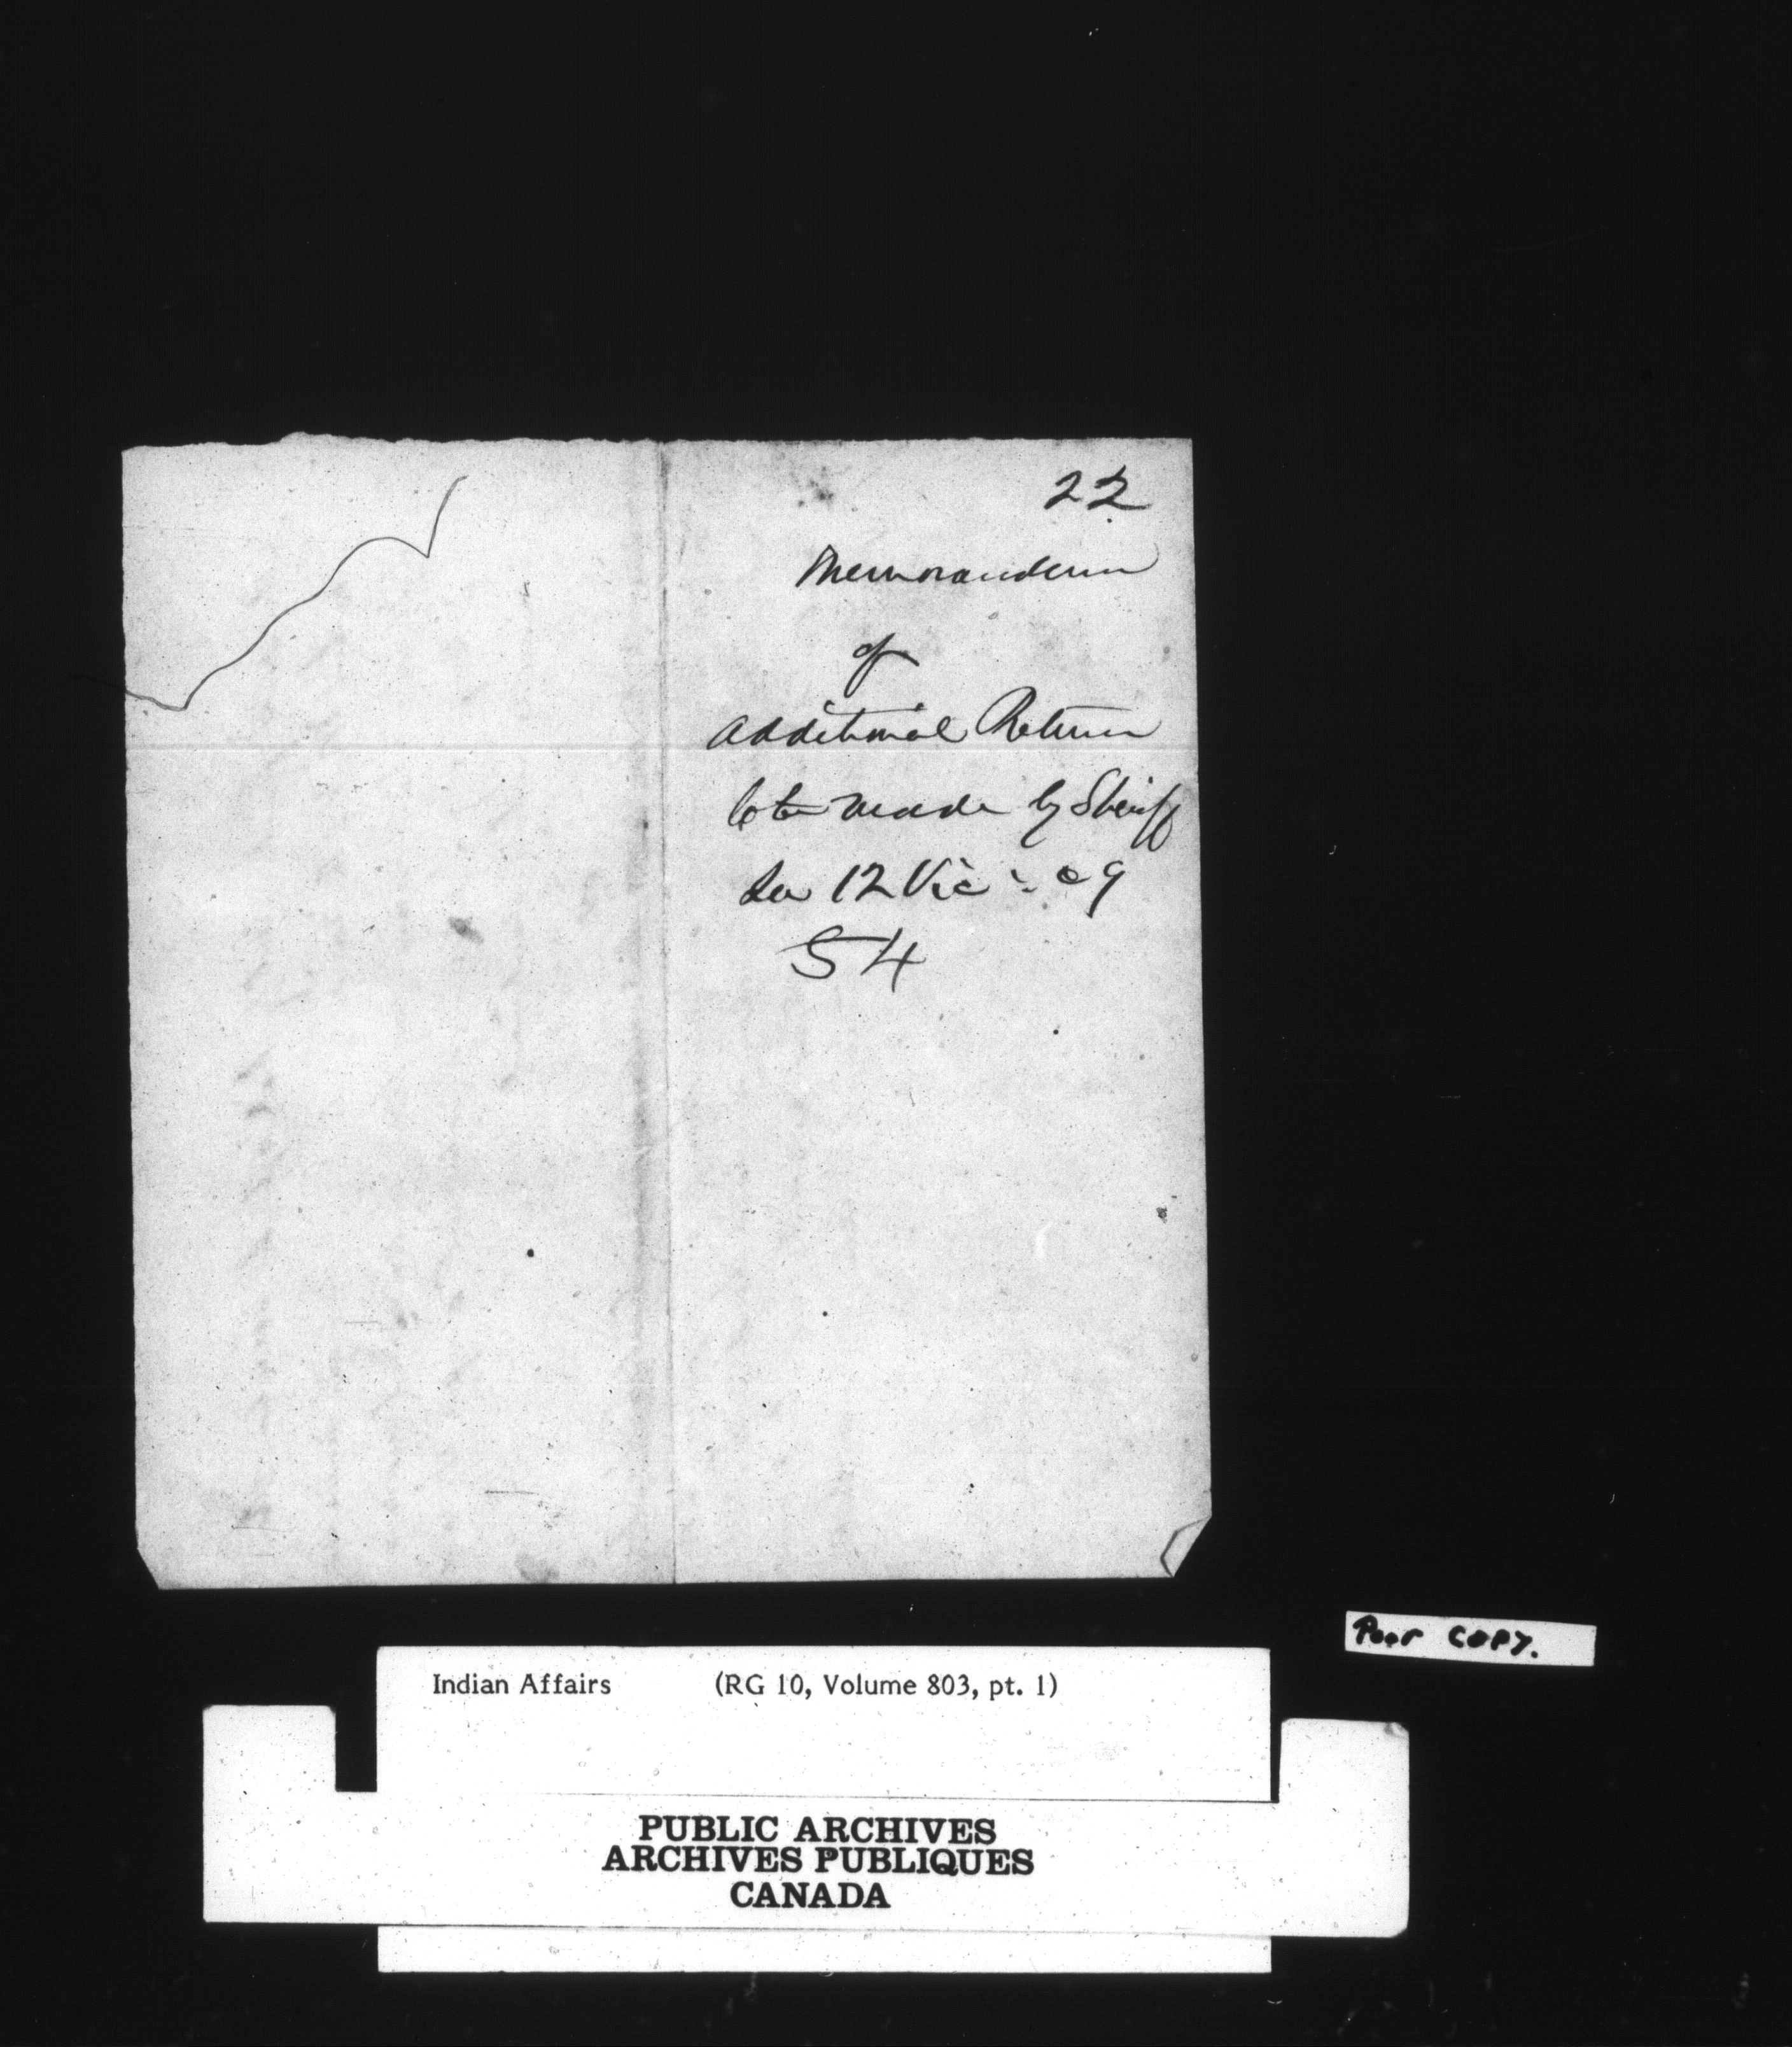 22
Memorandum
of
Additional Return
to be made by Sheriff
See 12 Vic: c 9
S 4
Poor COPY.
Indian Affairs (RG 10, Volume 803, pt. 1)
PUBLIC ARCHIVES
ARCHIVES PUBLIQUES
CANADA